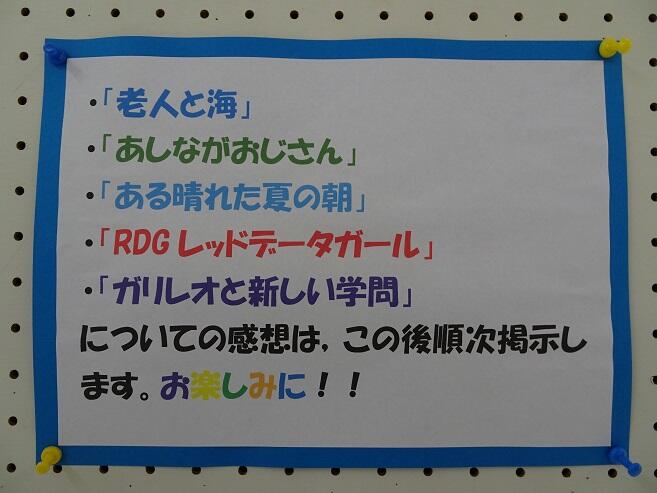 ・「老人と海」
・「あしながおじさん」
・「ある晴れた夏の朝」
・「RDGレッドデータガール」
・「ガリレオと新しい学問」
についての感想は，この後順次掲示し
ます。お楽しみに！！